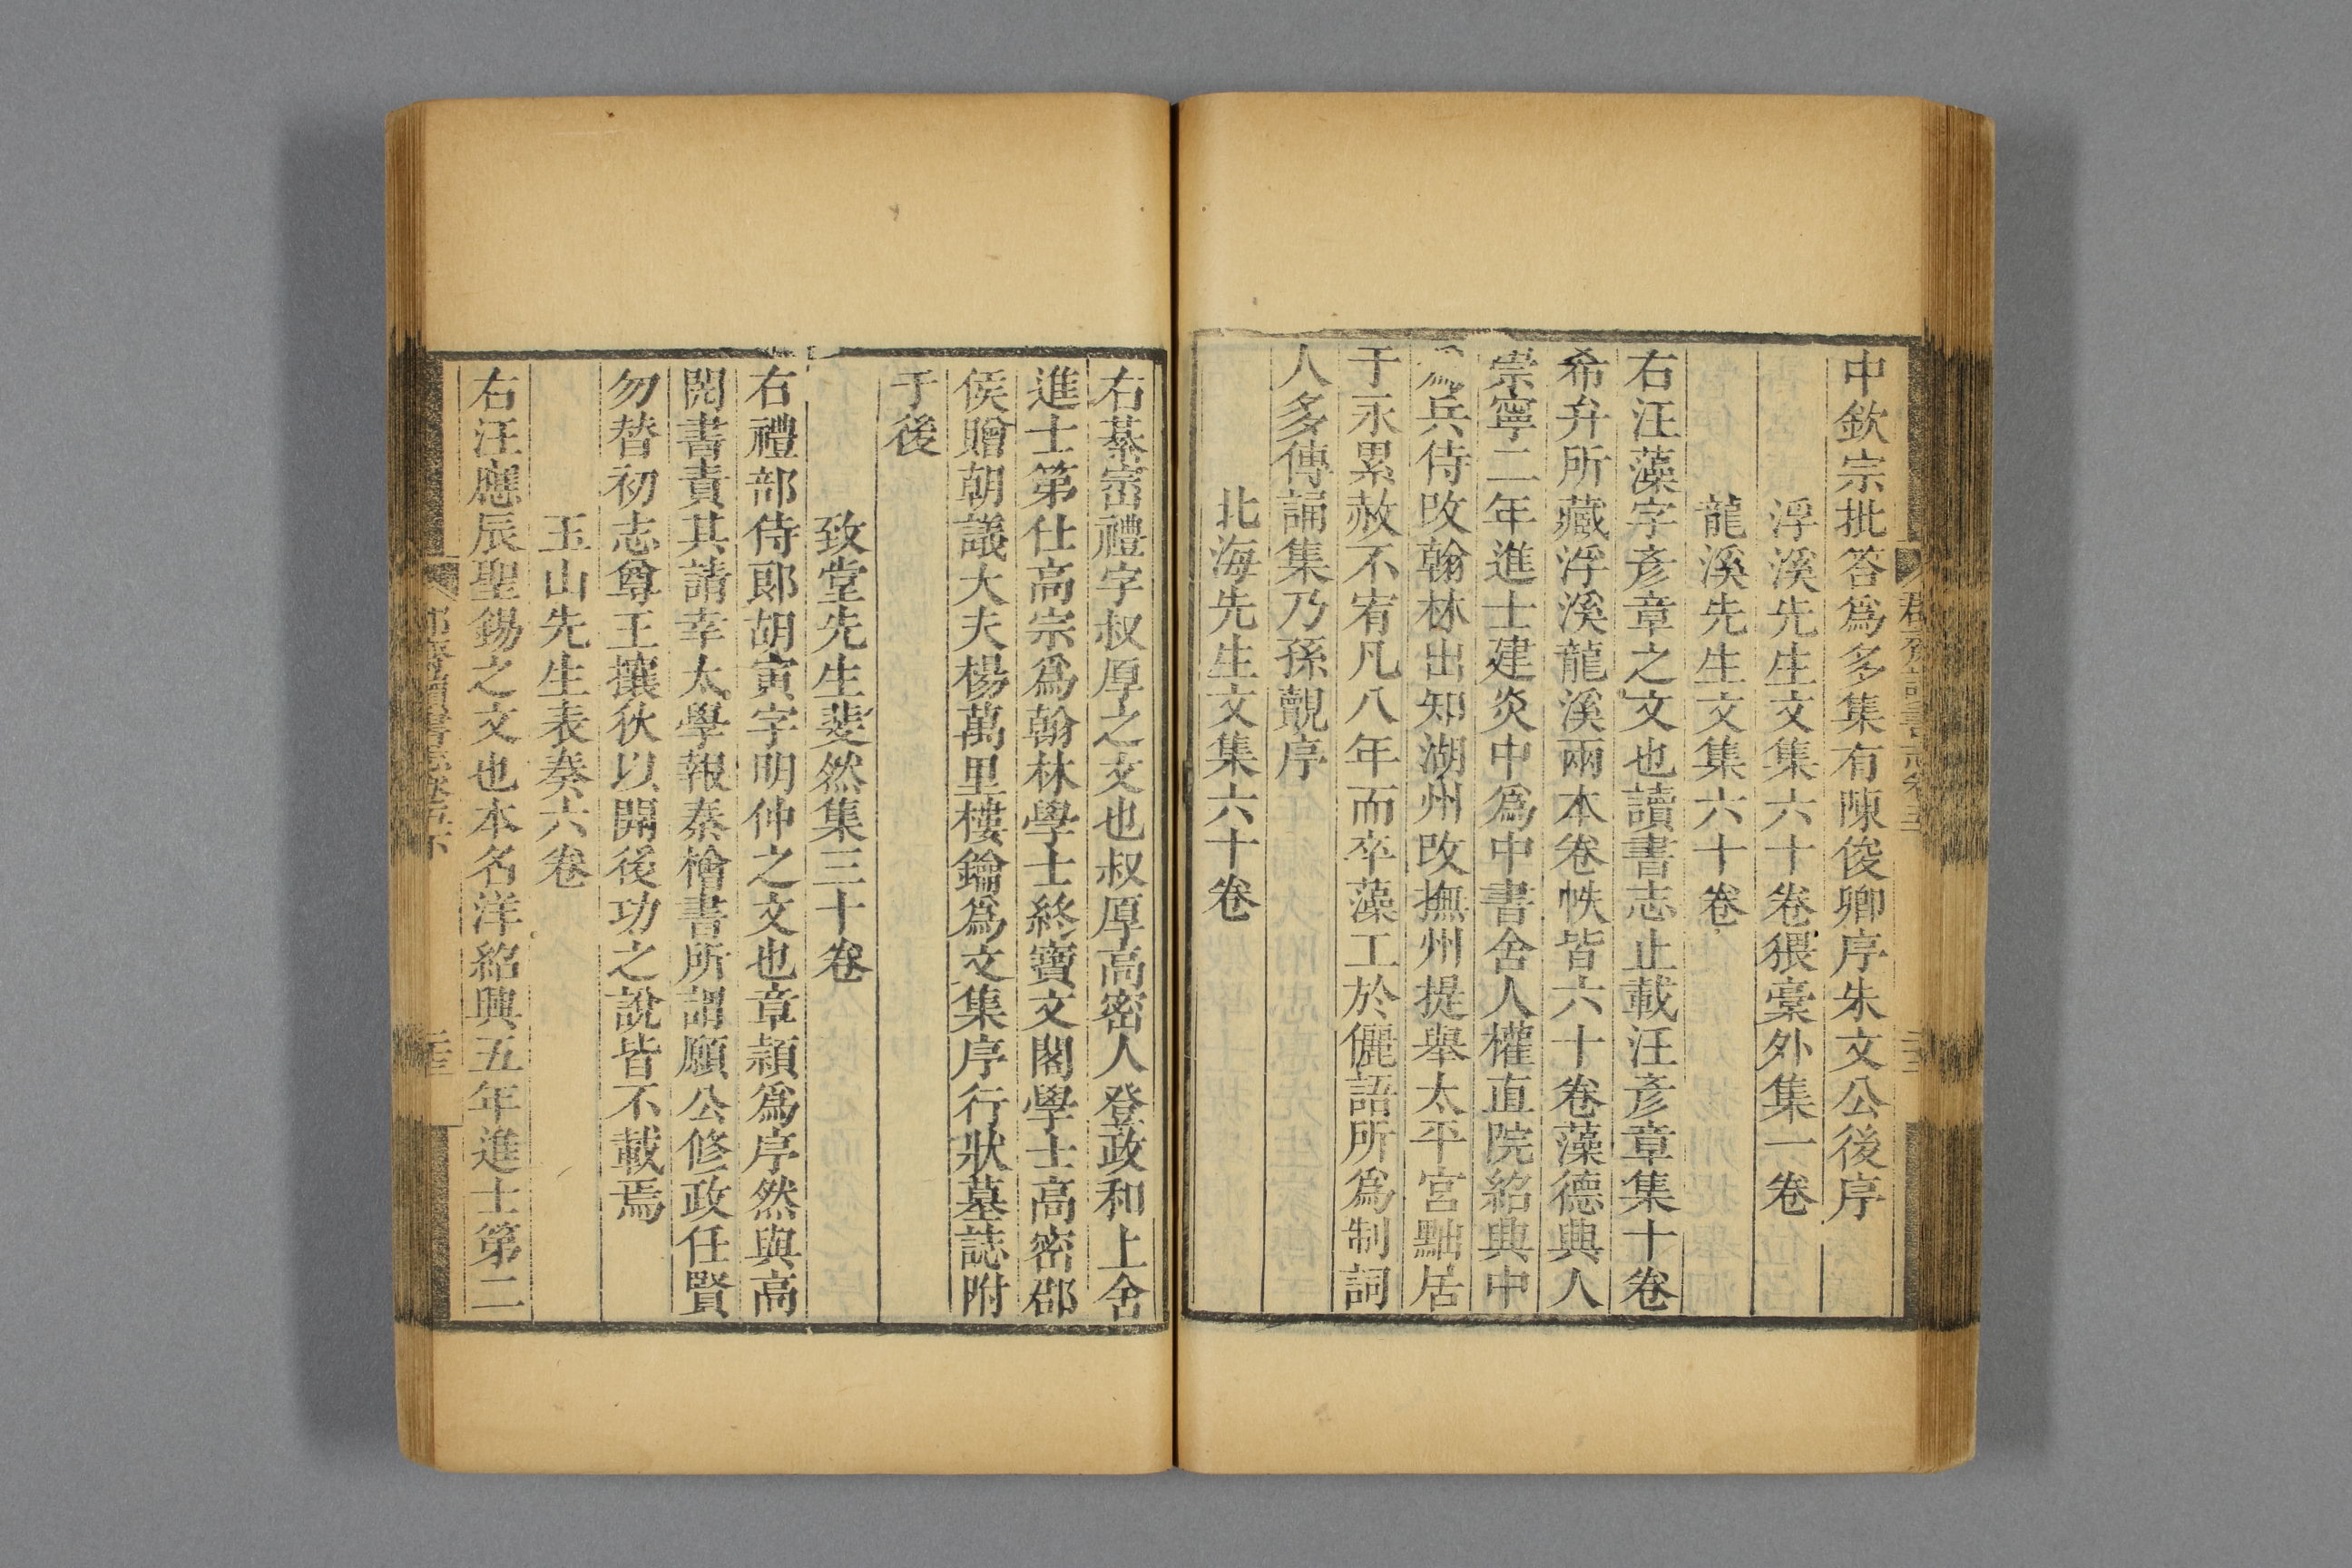 中欽宗批答爲多集有陳俊卿序朱文公後序
浮溪先生文集六十卷猥稾外集一卷
龍溪先生文集六十卷
右汪藻字彥章之文也讀書志止載汪彥章集十卷
希弁所藏浮溪龍溪兩本卷帙皆六十卷藻德興人
崇寧二年進士建炎中爲中書舍人權直院紹興中
爲兵侍改翰林出知湖州改撫州提舉太平宮黜居
于永累赦不宥凡八年而卒藻工於儷語所爲制詞
人多傳誦集乃孫覿序
北海先生文集六十卷
右綦崈禮字叔厚之文也叔厚高密人登政和上舍
進士第仕高宗爲翰林學士終寶文閣學士高密郡
侯贈朝議大夫楊萬里樓鑰爲文集序行狀墓誌附
于後
致堂先生斐然集三十卷
右禮部侍郎胡寅字明仲之文也章穎爲序然與高
閌書責其請幸太學報秦檜書所謂願公修政任賢
勿替初志尊王攘狄以開後功之說皆不載焉
玉山先生表奏六卷
右汪應辰聖錫之文也本名洋紹興五年進士第二